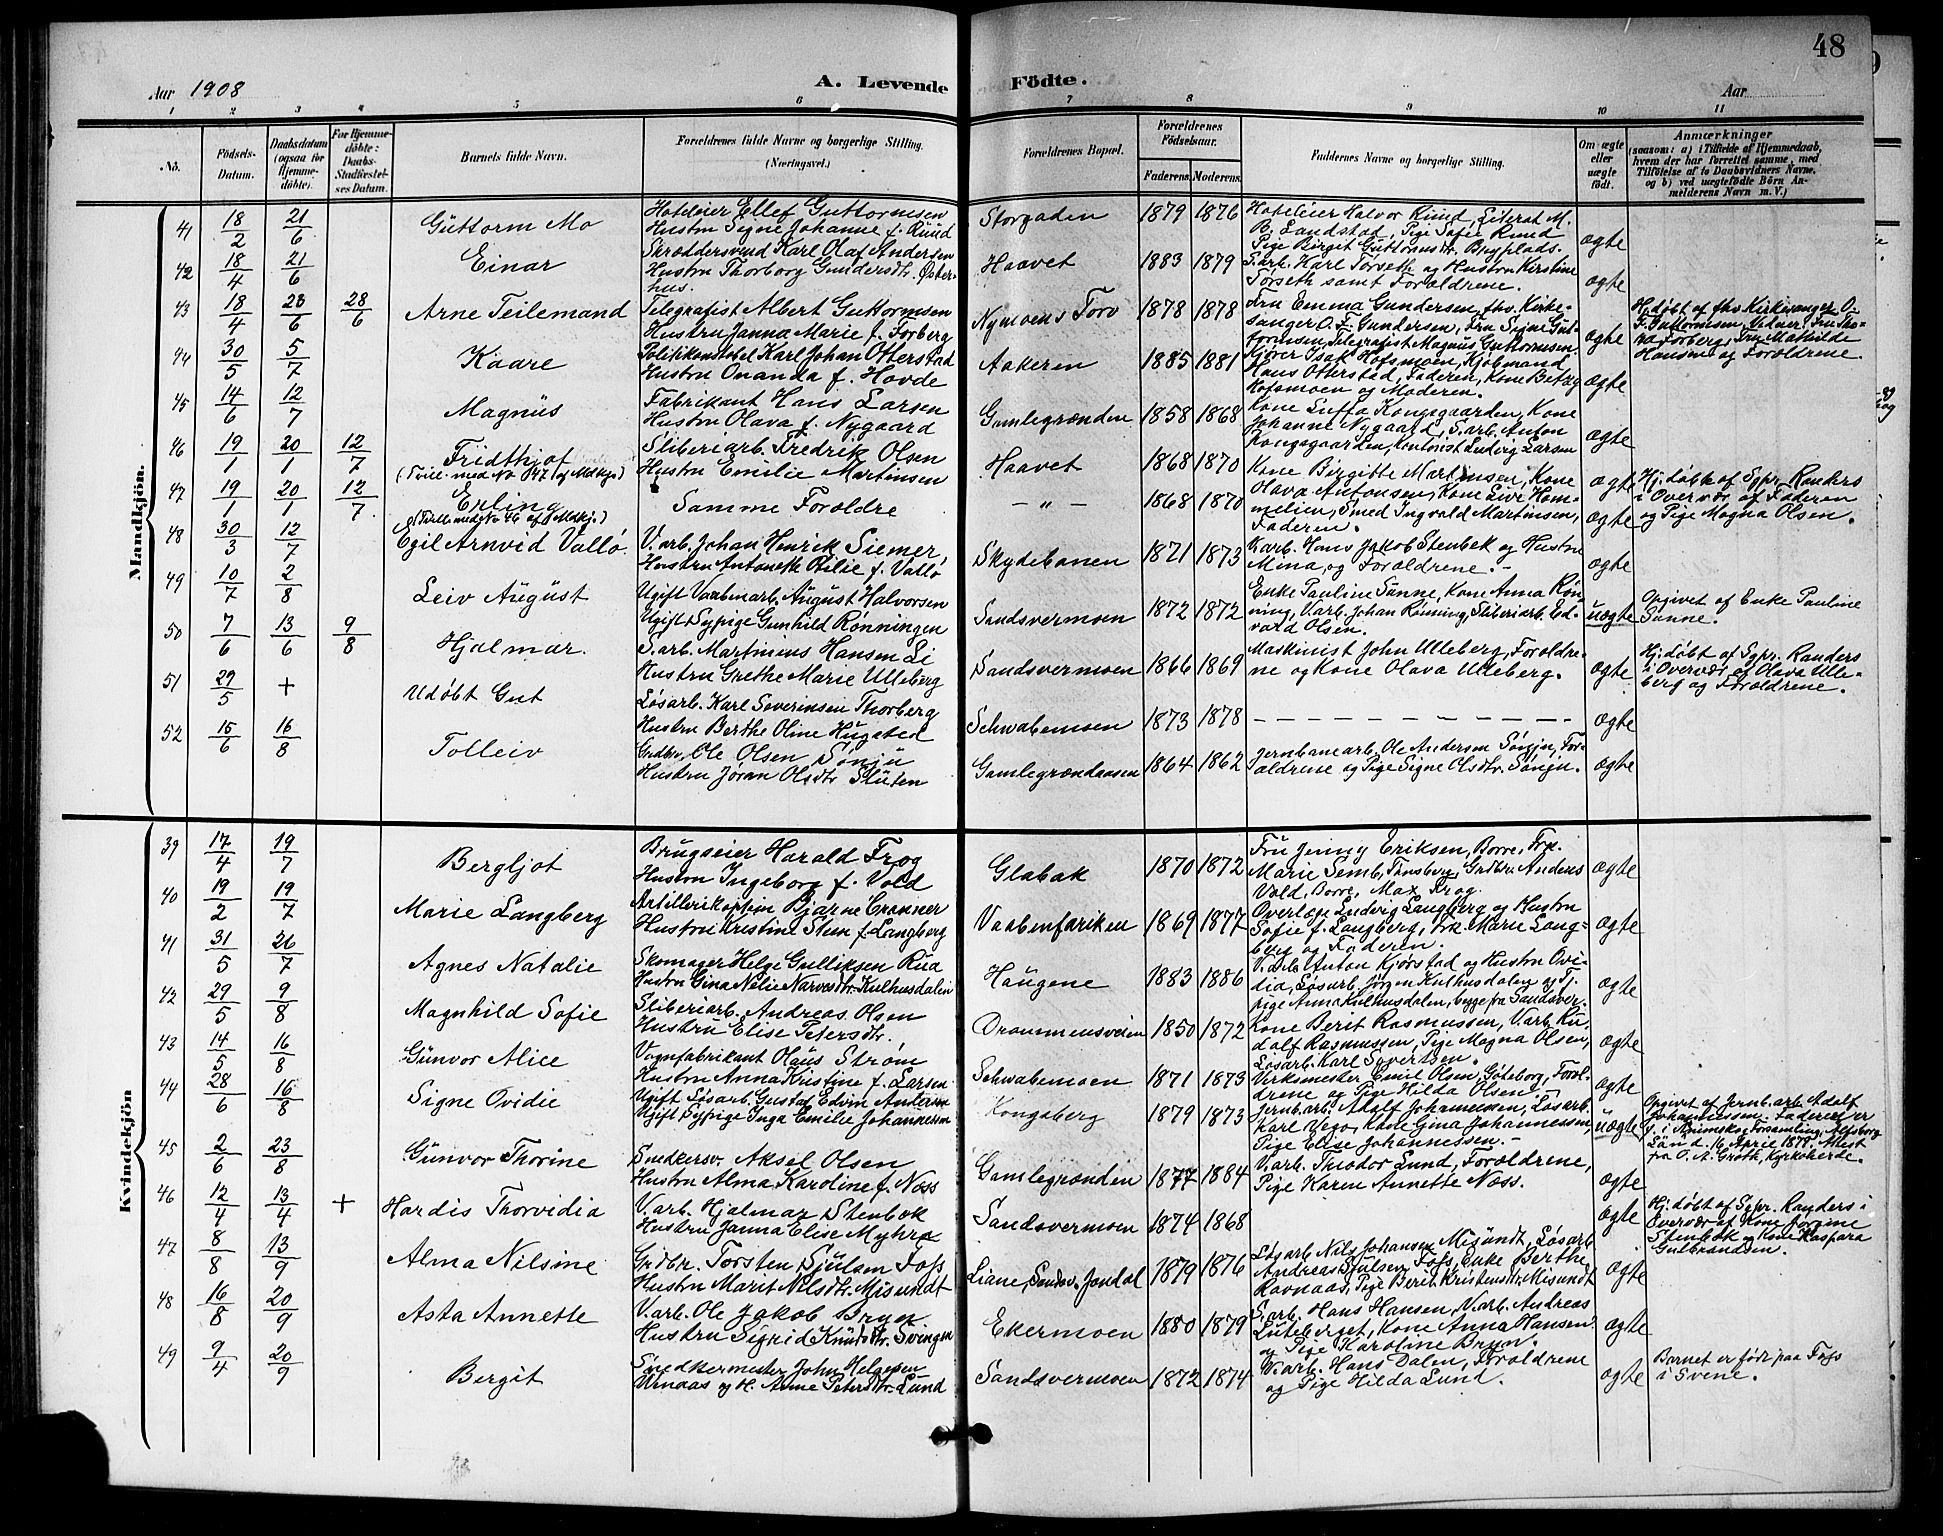 48
Aar 1908
A. Levende Födte.
Aar
1 2 3 4 5 6 7 8 9 10 11
No.
Födsels-Datum.
Daabsdatum (ogsaa för Hjemme-döbte).
For Hjemme-döbte: Daabs-Stadfæstel-ses Datum.
Barnets fulde Navn.
Forældrenes fulde Navne og borgerlige Stilling. (Næringsvei.)
Forældrenes Bopæl.
Forældrenes Födselsaar.
Faderens. Moderens.
Faddernes Navne og borgerlige Stilling.
Om ægte eller uægte födt.
Anmærkninger
(saasom: a) i Tilfælde af Hjemmedaab,
hvem der har forrettet samme, med
Tilföielse af to Daabsvidners Navne,
og b) ved uægtefödte Börn An-
melderens Navn m. V.)
Mandkjön.
41 18/2 21/6 Guttorm Mo
Hoteleier Ellef Guttormsen
Hustru Signe Johanne f. Ruud
Storgaden 1879 1876
Hoteleier Halvor Ruud, Literat M.
B. Landstad, Pige Sofie Ruud
Pige Birgit Guttormsdtr. Brygplads.
ægte
42 18/4 21/6 Einar
Skræddersvend Karl Olaf Andersen
Hustru Thorborg Gundersdtr. Øster-
hus.
Haavet 1883 1879
S.arb. Karl Torseth og Hustru Kirstine
Torseth samt Forældrene.
ægte
43 18/4 28/6 28/6 Arne Teilemand
Telegrafist Albert Guttormsen
Hustru Janna Marie f. Forberg
Nymoens Torv 1878 1878
Fru Emma Gundersen, fhv. Kirke-
sanger O. F. Gundersen, Fru Signe Gut-
tormsen, Telegrafist Magnus Guttormsen.
ægte
Hj. døbt af fhv. Kirkesanger O.
F. Guttormsen, Vidner: Fru Tho-
ra Forberg, Fru Mathilde
Hansen og Forældrene.
44 30/5 5/7 Kaare
Politikonstabel Karl Johan Otterstad
Hustru Onanda f. Hovde
Aakeren 1885 1881
Gjører Isak Hofsmoen, Kjøbmand
Hans Otterstad, Faderen, Kone Betzy
Hofsmoen og Moderen.
ægte
45 14/6 12/7 Magnus
Fabrikant Hans Larsen
Hustru Olava f. Nygaard
Gamlegrænden 1858 1868
Kone Luffa Kongsgaarden, Kone
Johanne Nygaard, S.arb. Anton
Kongsgaarden, Kontorist Ludvig Larsen
ægte
46 19/1 20/1 12/7 Fridthjof
(Tvill. med No 47 af Mdkj.)
Sliberiarb. Fredrik Olsen
Hustru Emilie Martinsen
Haavet 1868 1870
Kone Birgitte Martinsen, Kone
Olava Antonsen, Kone Live Hem-
melien, Smed Ingvald Martinsen,
Faderen.
ægte
Hj. døbt af Sgpr. Randers
i Overvær af Faderen
og Pige Magna Olsen.
47 19/1 20/1 12/7 Erling
(Tvill. med No 46 af Mdkj.)
Samme Forældre
– „ – 1868 1870
ægte
48 30/3 12/7 Egil Arnvid Vallø.
V.arb. Johan Henrik Siemer,
Hustru Antonette Otilie f. Vallø
Skydebanen 1871 1873
V.arb. Hans Jakob Stenbek og Hustru
Mina, og Forældrene.
ægte
49 10/7 2/8 Leiv August
Ugift Vaabenarb. August Halvorsen
Ugift Sypige Gunhild Rønningen
Sandsvermoen 1872 1872
Enke Pauline Sanne, Kone Anna Røn-
ning, V.arb. Johan Rønning, Sliberiarb. Ed-
vard Olsen.
uægte
Opgivet af Enke Pauline
Sanne.
50 7/6 13/6 9/8 Hjalmar.
S.arb. Martinius Hansen Li
Hustru Grethe Marie Ulleberg
Sandsvermoen 1866 1869
Maskinist John Ulleberg, Forældre-
ne og Kone Olava Ulleberg.
ægte
Hj. døbt af Sgpr. Randers
i Overvær af Olava Ulle-
berg og Forældrene.
51 29/5 + Udøbt Gut
Løsarb. Karl Severinsen Thorberg
Hustru Berthe Oline Hugsted
Schwabemoen 1873 1878
– – – – – – – – – –
ægte
52 15/6 16/8 Tolleiv
Grdbr. Ole Olsen Sønju
Hustru Jøran Olsdtr. Sluten
Gamlegrændaasen 1864 1862
Jernbanearb. Ole Andersen Sønju, For-
ældrene og Pige Signe Olsdtr. Sønju.
ægte
Kvindekjön
39 17/4 19/7 Bergljot
Brugseier Harald Frog
Hustru Ingeborg f. Vold
Glabak 1870 1872
Fru Jenny Eriksen, Borre, Frk.
Marie Semb, Tønsberg, Grdbr. Anders
Vold, Borre, Max Frog.
ægte
40 19/2 19/7 Marie Langberg
Artillerikaptein Bjarne Cranner
Hustru Kristine Steen f. Langberg
Vaabenfabriken 1869 1877
Overlæge Ludvig Langberg og Hustru
Sofie f. Langberg, Frk. Marie Lang-
berg og Faderen.
ægte
41 31/5 26/7 Agnes Natalie
Skomager Helge Gulliksen Rua
Hustru Gina Nelie Narvesdtr. Kulhusdalen
Haugene 1883 1886
V.arb. Anton Kjørstad og Hustru Ovi-
dia, Løsarb. Jørgen Kulhusdalen og Tj.
pige Anna Kulhusdalen, begge fra Sandsver.
ægte
42 29/5 9/8 Magnhild Sofie
Sliberiarb. Andreas Olsen
Hustru Elise Petersdtr.
Drammensveien 1850 1872
Kone Berit Rasmussen, V.arb. Ru-
dolf Rasmussen, Pige Magna Olsen,
Løsarb. Karl Sovertsen.
ægte
43 14/5 16/8 Gunvor Alice
Vognfabrikant Olaus Strøm
Hustru Anna Kristine f. Larsen
Schwabemoen 1871 1873
Virksmester Emil Olsen, Gøteborg, Foræl-
drene og Pige Hilda Olsen.
ægte
44 28/6 16/8 Signe Ovidie
Ugift Løsarb. Gustaf Edvin Anderson
Ugift Sypige Inga Emilie Johannessen
Kongsberg 1879 1873
Jernb.arb. Adolf Johannessen, Løsarb.
Karl Vego, Kone Gina Johannessen
Pige Elise Johannessen.
uægte
Opgivet af Jernb. arb. Adolf
Johannessen. Faderen er
f. i Animskog Forsamling, Elfsborg
Län d. 16 April 1879. Attest
fra O. A. Groth, Kyrkoherde.
45 2/6 23/8 Gunvor Thorine
Snedkersv. Aksel Olsen
Hustru Alma Karoline f. Næss
Gamlegrænden 1877 1884
V.arb. Theodor Lund, Forældrene,
Pige Karen Annette Næss.
ægte
46 12/4 13/4 + Hardis Thorvidia
V.arb. Hjalmar Stenbæk
Hustru Janna Elise Myhre
Sandsvermoen 1874 1868
ægte
Hj. døbt af Sgpr. Randers i
Overvær af Kone Jorgine
Stenbæk og Kone Kaspara
Gulbrandsen.
47 8/8 13/9 Alma Nilsine
Grdbr. Torsten Sjulsen Fofs
Hustru Marit Nilsdtr. Misundt
Liane, Sandsv. Jondal 1879 1876
Løsarb. Nils Johansen Misundt, Løsarb
Andreas Sjulsen Fofs, Enke Berthe
Ravnaas, Pige Berit Kristensdtr. Misundt
ægte
48 16/8 20/9 Asta Annette
V.arb. Ole Jakob Bryn
Hustru Sigrid Knudsdtr. Svingen
Ekermoen 1880 1879
S.arb. Hans Hansen, V.arb. Andreas
Luteberget, Kone Anna Hansen
og Pige Karoline Bryn.
ægte
49 9/4 20/9 Bergit
Snedkermester John Helgesen
Urnaas og H. Anne Petersdtr. Lund
Sandsvermoen 1872 1874
V.arb. Hans Dalen, Forældrene
og Pige Hilda Lund.
ægte
Barnet er født paa Fofs
i Svene.